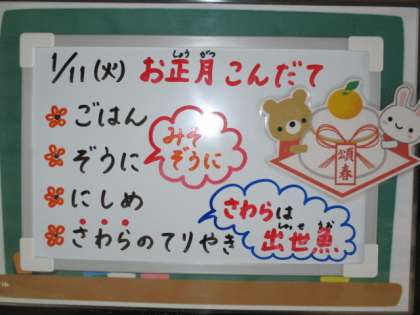 1/11(火) お正月こんだて
しょう がつ
ごはん
ぞうに
みそ
ぞうに
にしめ
さわらのてりやき
さわらは
しゅっせ うお
出世魚
頌春